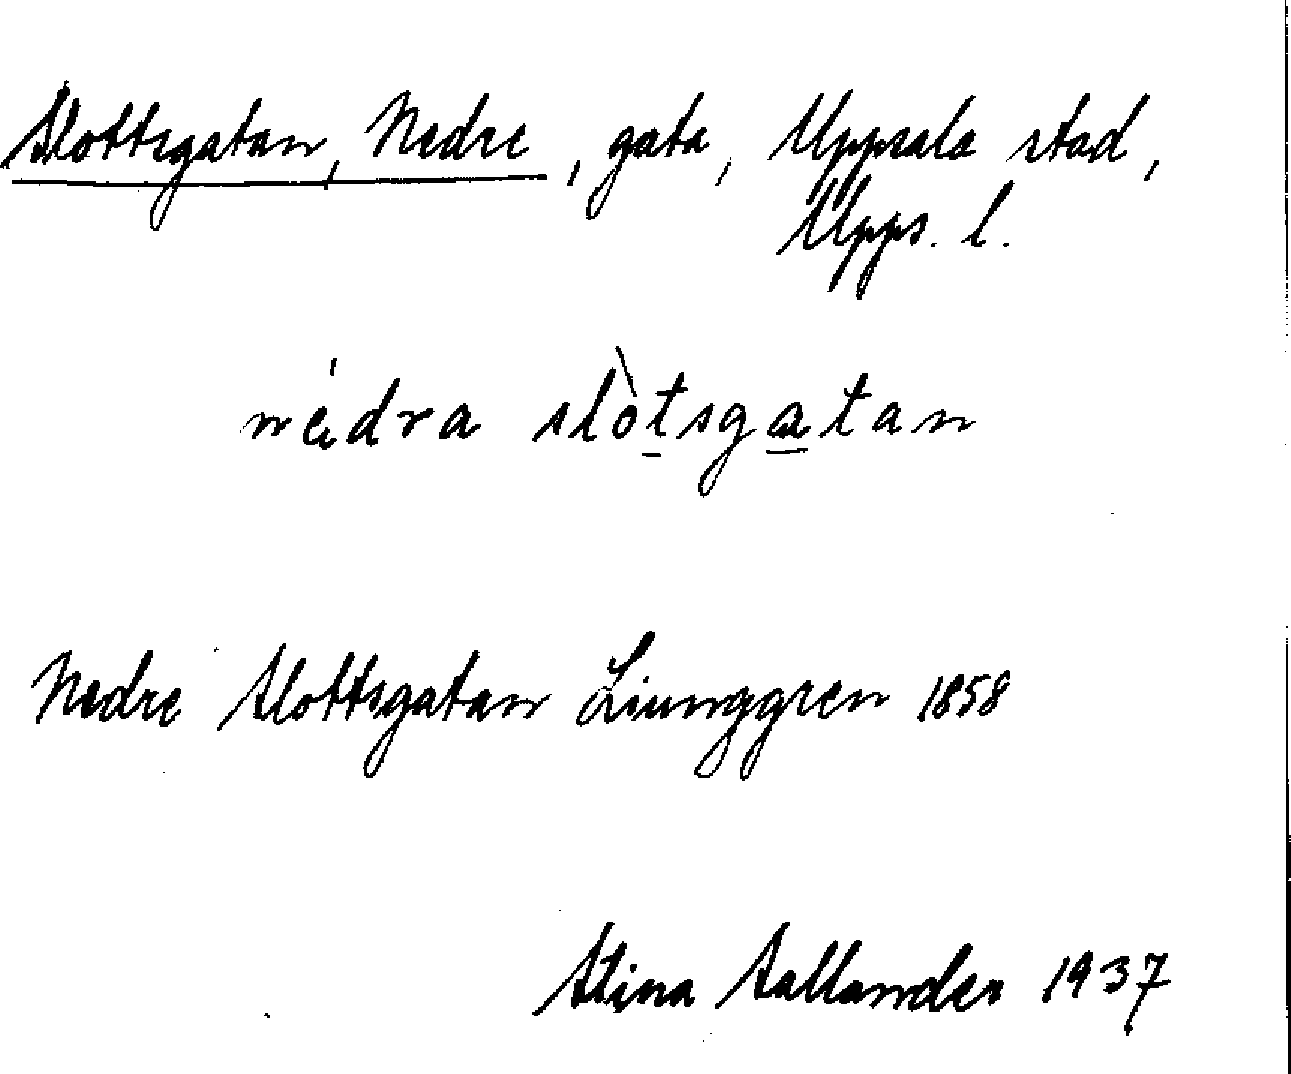 Slottsgatan, Nedre, gata, Uppsala stad,
Upps. l.
nédra slòtsgatan
Nedre Slottsgatan Liunggren 1858
Stina Sallander 1937